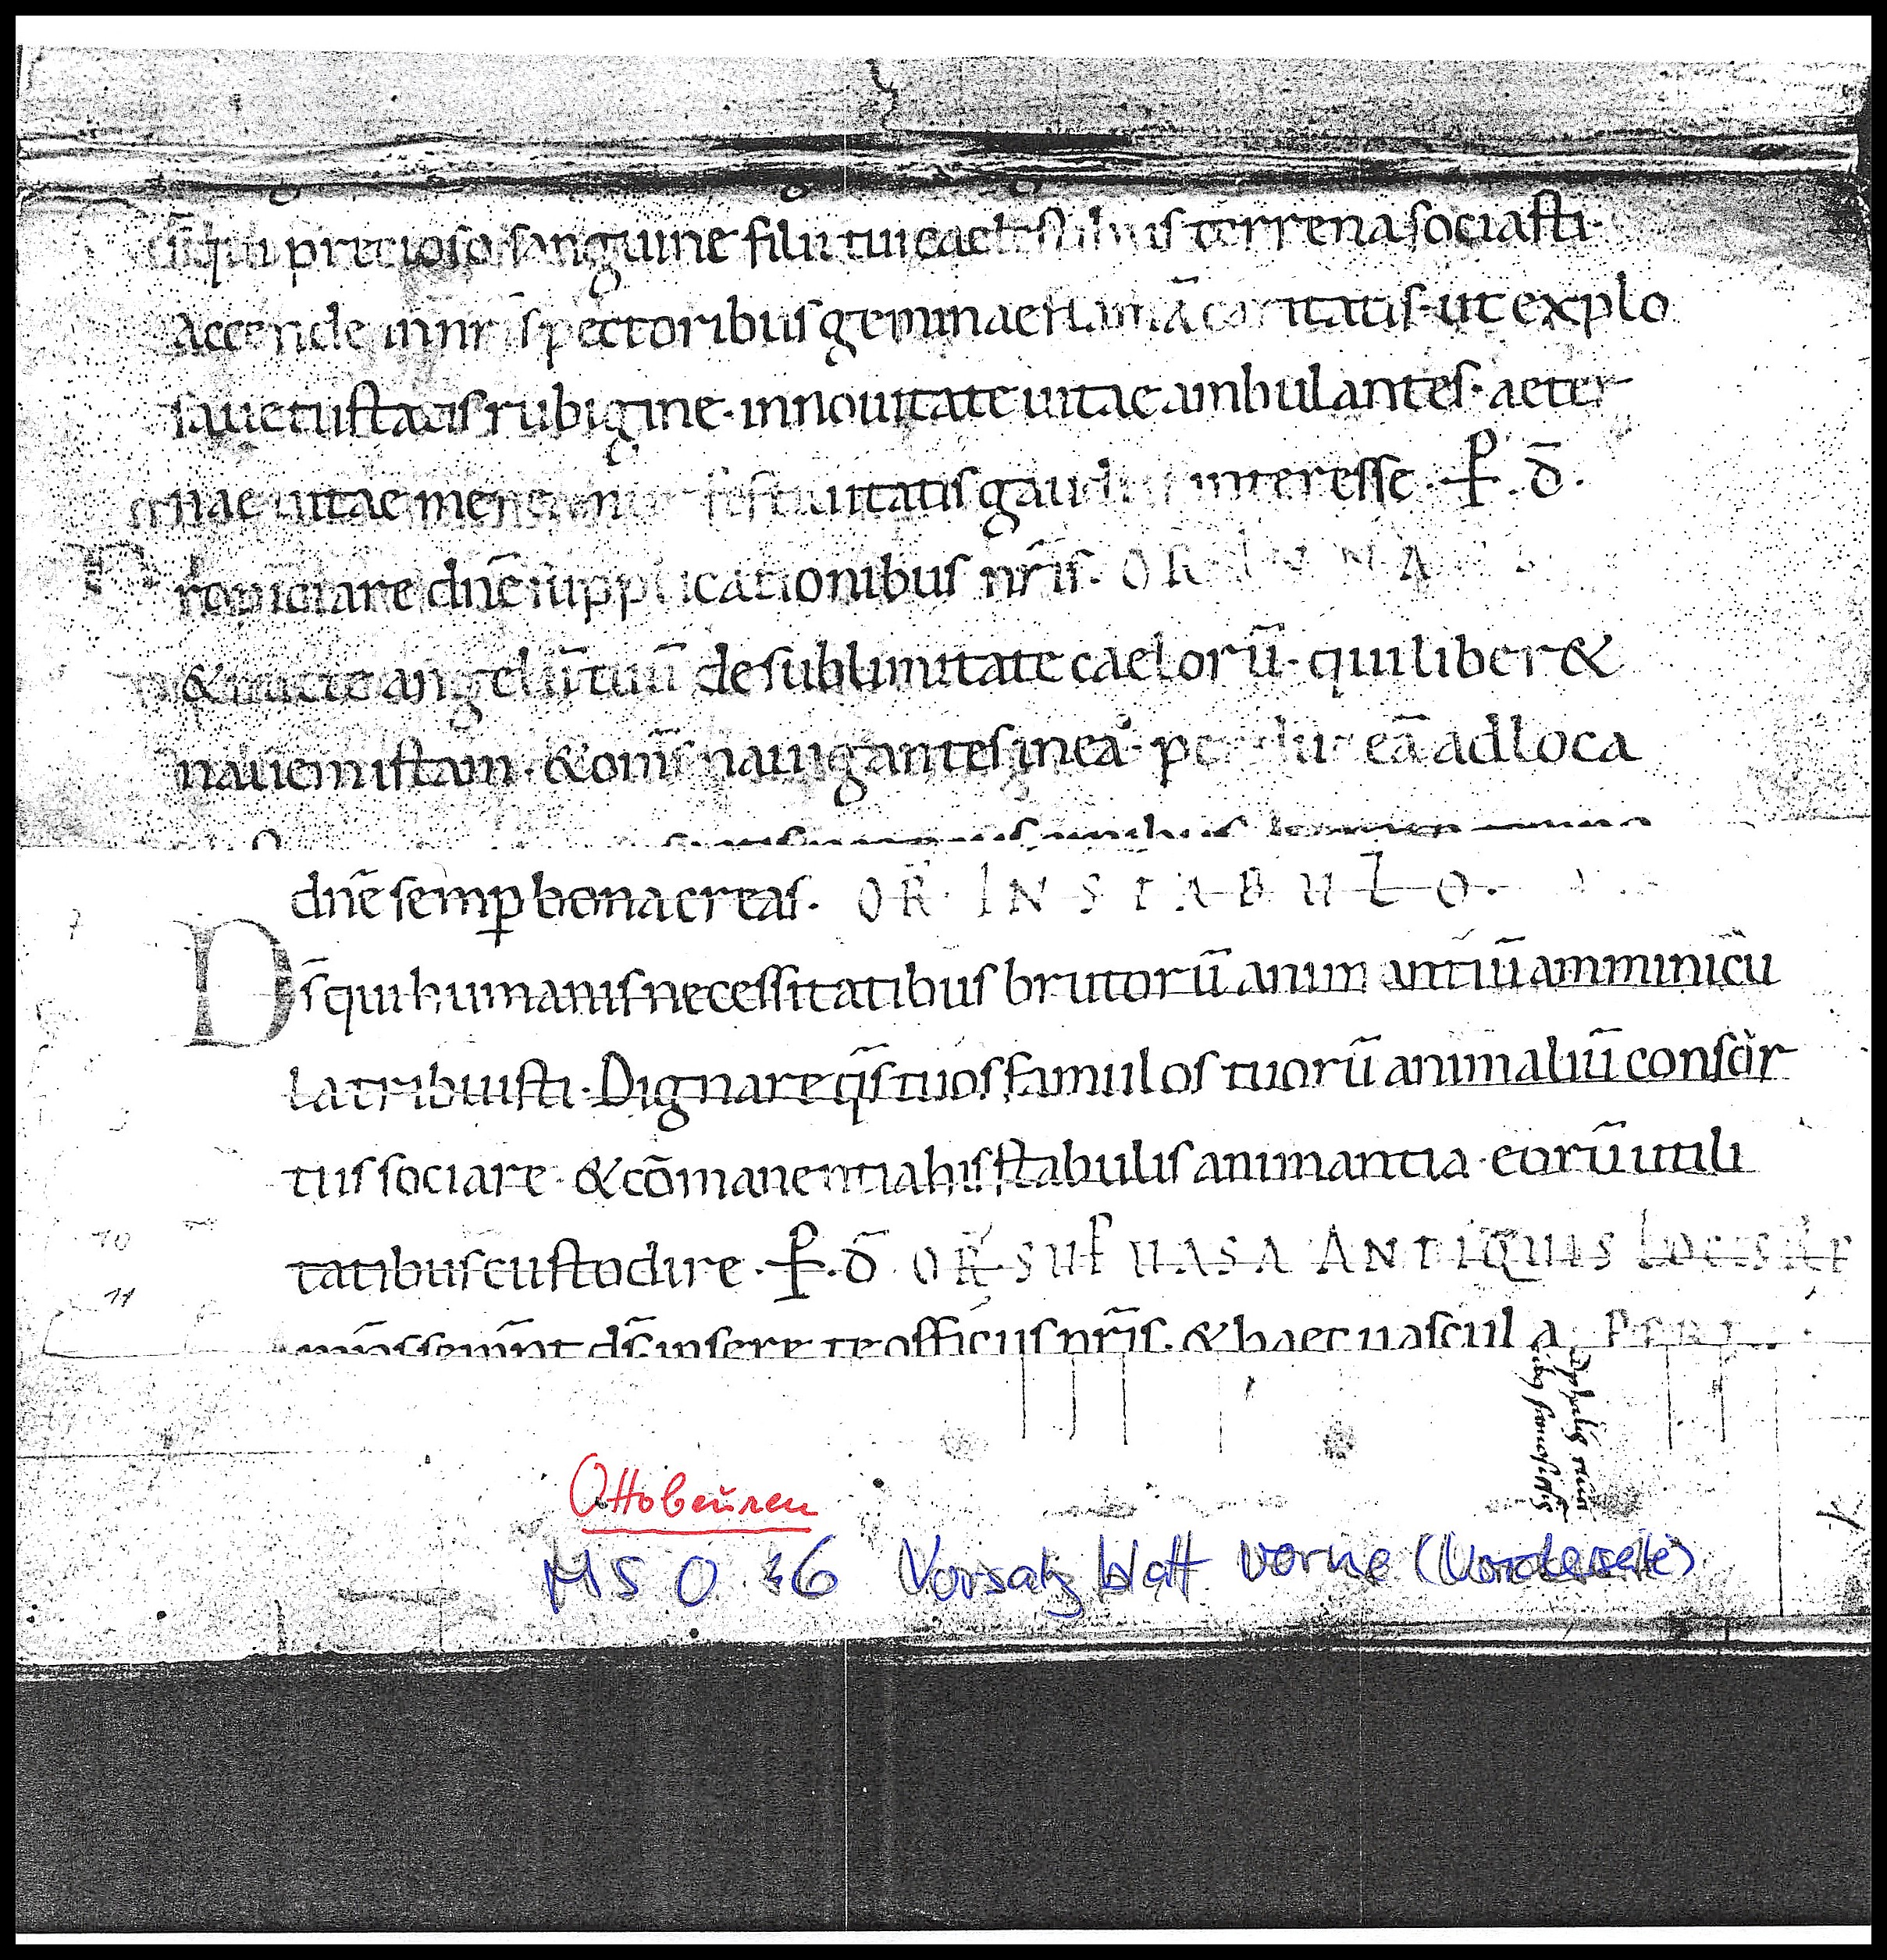 d̄s qui precioso sanguine filii tui caelestibus terrena sociasti.
Accende in nr̄is pectoribus geminae flammā caritatis. ut explo
sa uetustatis rubigine. in nouitate uitae ambulantes. aeter
nae uitae mereamur festiuitatis gaudiis interesse. P. d̄.
Propiciare dn̄e supplicationibus nr̄is. OR IN NAUI
& mitte angelū tuū de sublimitate caelorū. qui liber&
nauem istam. & om̄s nauigantes in ea. eā ad loca
dn̄e semp bona creas. OR̄ IN STABULO.
Ds̄ qui humanis necessitatibus brutorū animantiū amminicu
la tribuisti. Dignare qs̄ tuos famulos tuorū animaliū consor
tiis sociare. & cōmanentia his stabulis animantia. eorū utili
tatibus custodire. P. d̄ OR̄ SUP UASA ANTIQUIS LOCIS REP
om̄ps semp̄t ds̄ insere te officiis nr̄is. & haec uascula
Ottobeuren
MS O. 36 Vorsatzblatt vorne (Vorderseite)